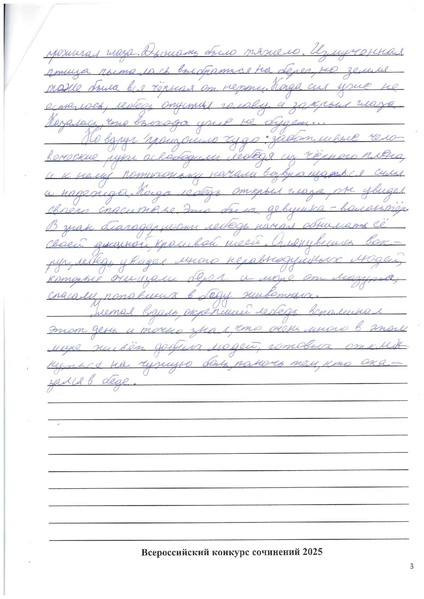 прожигал глаза. Дышать было тяжело. Измученная
птица пыталась выбраться на берег, но земля
тоже была вся чёрная от нефти. Когда сил уже не
осталось, лебедь опустил голову и закрыл глаза.
Казалось, что выхода уже не будет...
Но вдруг произошло чудо: заботливые чело-
веческие руки освободили лебедя из чёрного плена,
и к нему потихоньку начали возвращаться силы
и надежда. Когда лебедь открыл глаза, он увидел
своего спасителя. Это была девушка-волонтёр.
В знак благодарности лебедь начал обнимать её
своей длинной, красивой шеей. Оглянувшись вок-
руг, лебедь увидел много неравнодушных людей,
которые очищали берег и море от мазута,
спасали попавших в беду животных.
Улетая вдаль, окрепший лебедь вспоминал
этот день и точно знал, что очень много в этом
мире живёт добрых людей, готовых откликнуться
на чужую боль, помочь тем, кто ока-
зался в беде.
Всероссийский конкурс сочинений 2025
3